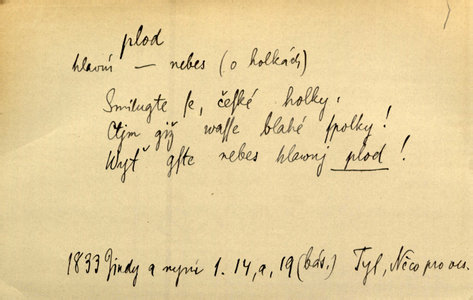 plod
hlavní — nebes (o holkách)
Smilugte se, české holky,
Ctjm giž wasse blahé spolky!
Wyť gste nebes hlawnj plod!
1833 Jindy a nyní 1. 14, a, 19 (bás.) Tyl, Něco pro ves.